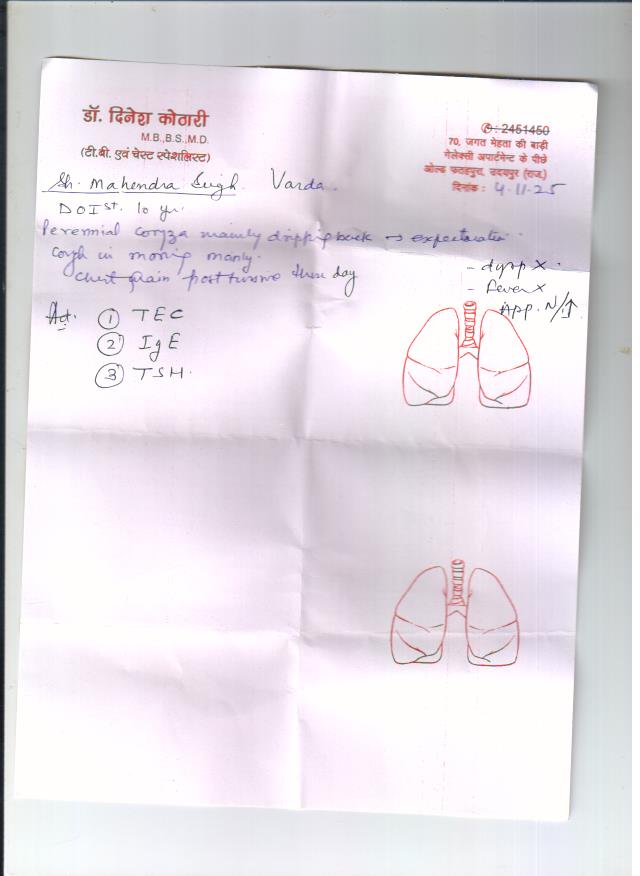 डॉ. दिनेश कोठारी
M.B.,B.S.,M.D.
(टी.बी. एवं चेस्ट स्पेशलिस्ट)
✆: 2451450
70, जगत मेहता की बाड़ी
गेलेक्सी अपार्टमेन्ट के पीछे
ओल्ड फतहपुरा, उदयपुर (राज.)
दिनांक : 4.11.25
Sh. Mahendra Singh. Varda.
DOIst. 10 yr.
Perennial coryza mainly dripping back → expectoration
Cough in morning mainly.
Chest pain post tussive three day
- dysp X.
- Fever X
App. N/↓
Ad.
① TEC
② IgE
③ TSH.